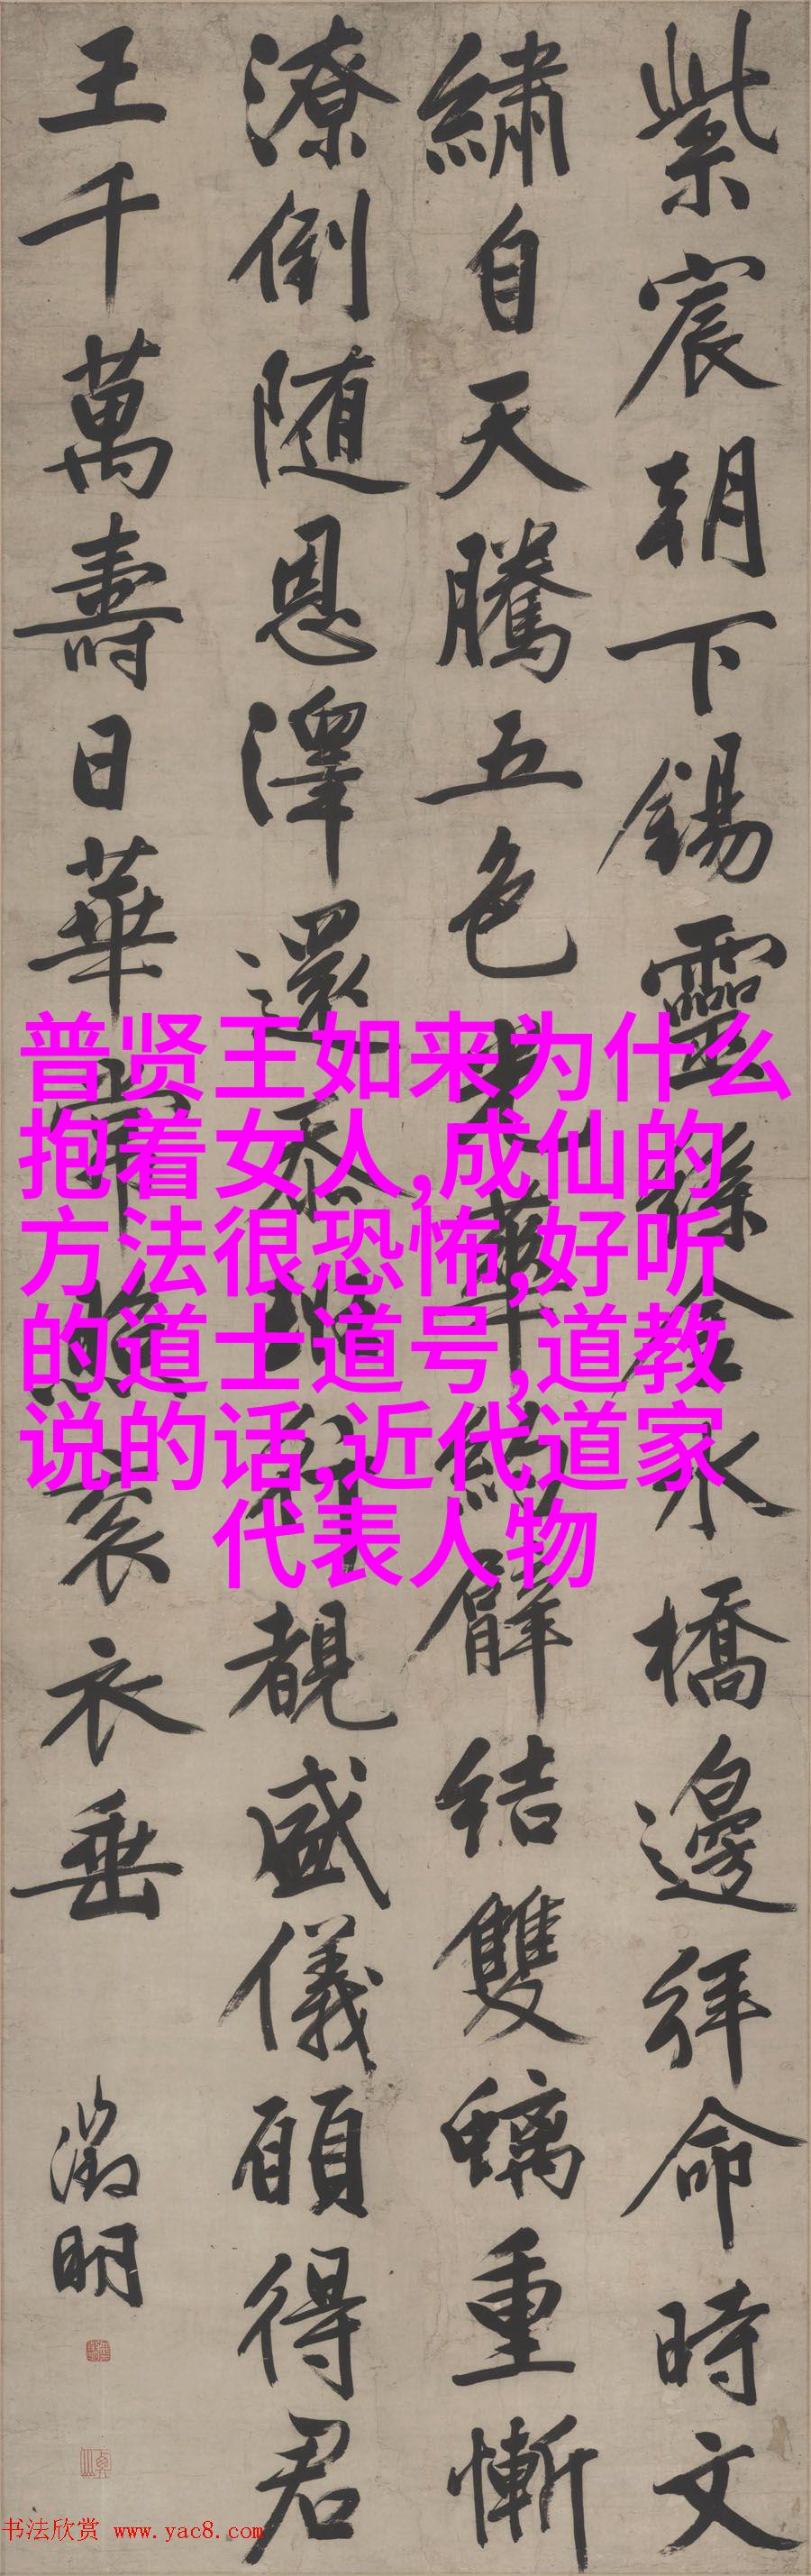 紫宸朝下錫靈絲金水橋邊拜命時文
繡自天騰五色光華約臂結雙螭重慚
潦倒随恩澤還忝班行覩盛儀願得君
王千萬壽日華常照袞衣垂
徵明
普贤王如来为什么
抱着女人,成仙的
方法很恐怖,好听
的道士道号,道教
说的话,近代道家
代表人物
书法欣赏 www.yac8.com